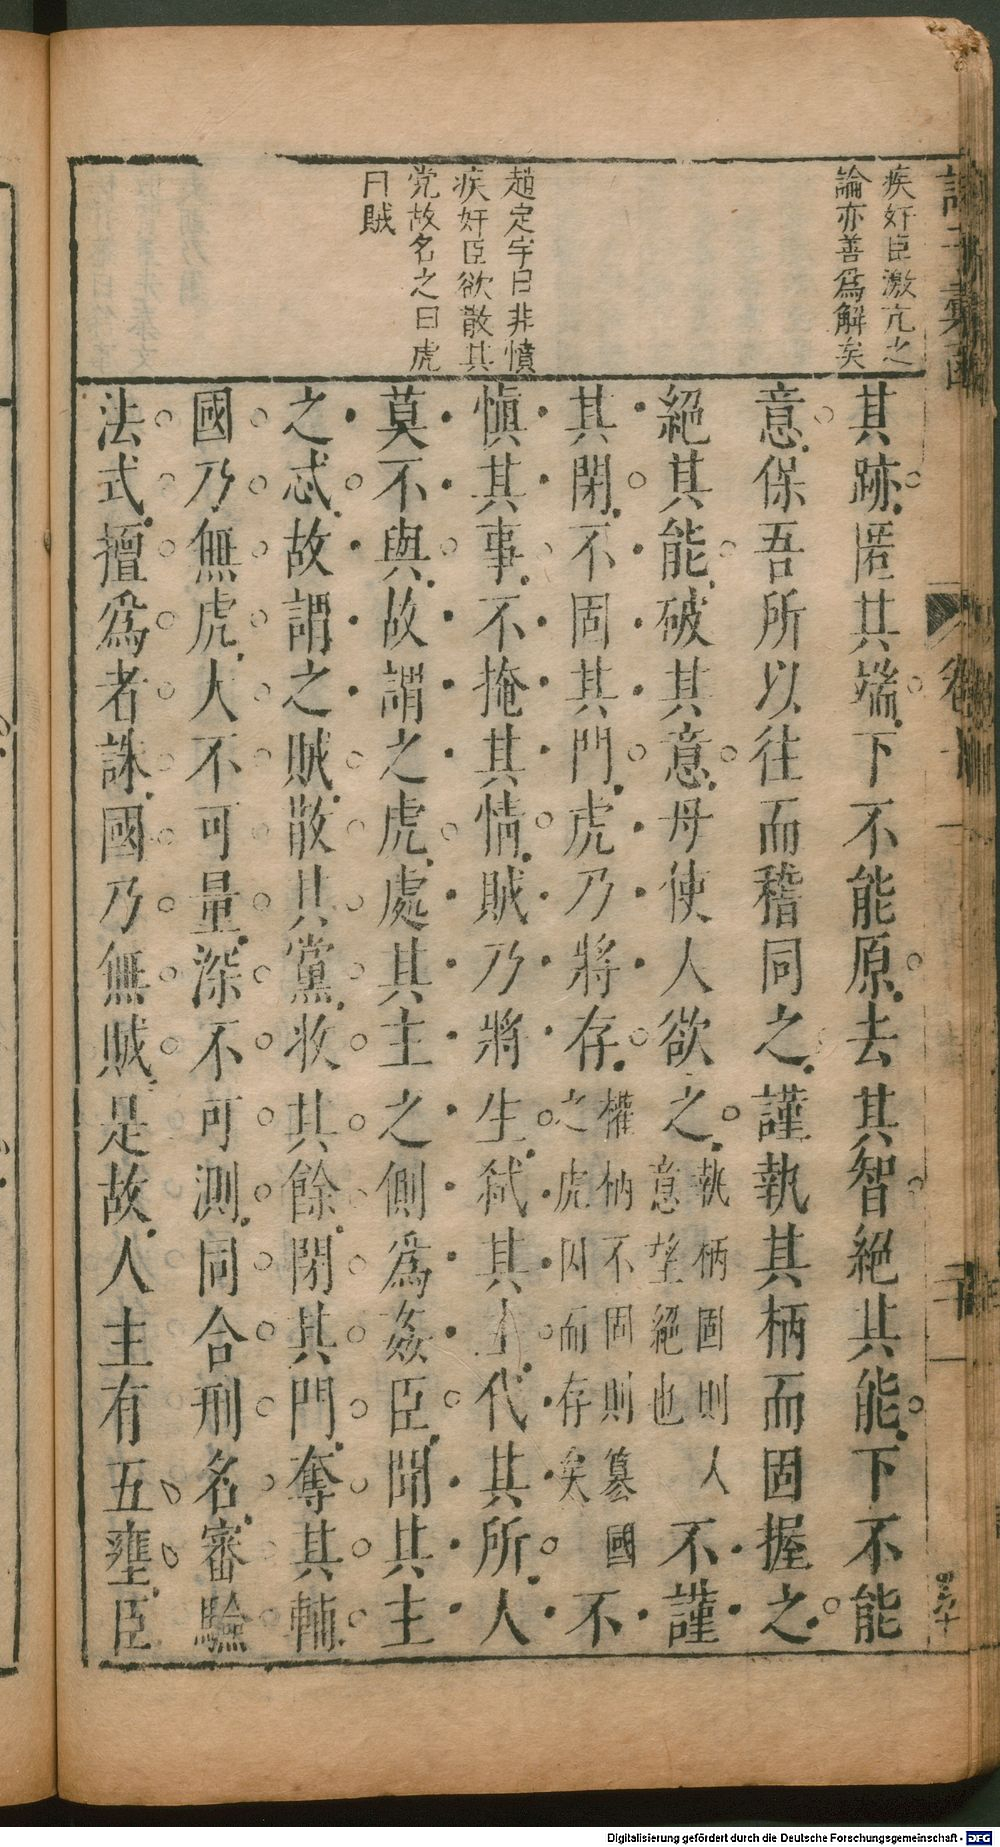 疾奸臣激亢之
論亦善爲解矣
趙定宇曰非憤
疾奸臣欲散其
党故名之曰虎
曰賊
其跡匿其端下不能原去其智絕其能下不能
意保吾所以往而稽同之謹執其柄而固握之
絕其能破其意毋使人欲之執柄固則人意望絕也不謹
其閉不固其門虎乃將存權柄不固則篡國之虎因而存矣不
愼其事不掩其情賊乃將生弑其主代其所人
莫不與故謂之虎處其主之側爲姦臣聞其主
之忒故謂之賊散其黨收其餘閉其門奪其輔
國乃無虎大不可量深不可測同合刑名審驗
法式擅爲者誅國乃無賊是故人主有五壅臣
諸子彙函
卷十
Digitalisierung gefördert durch die Deutsche Forschungsgemeinschaft - DFG